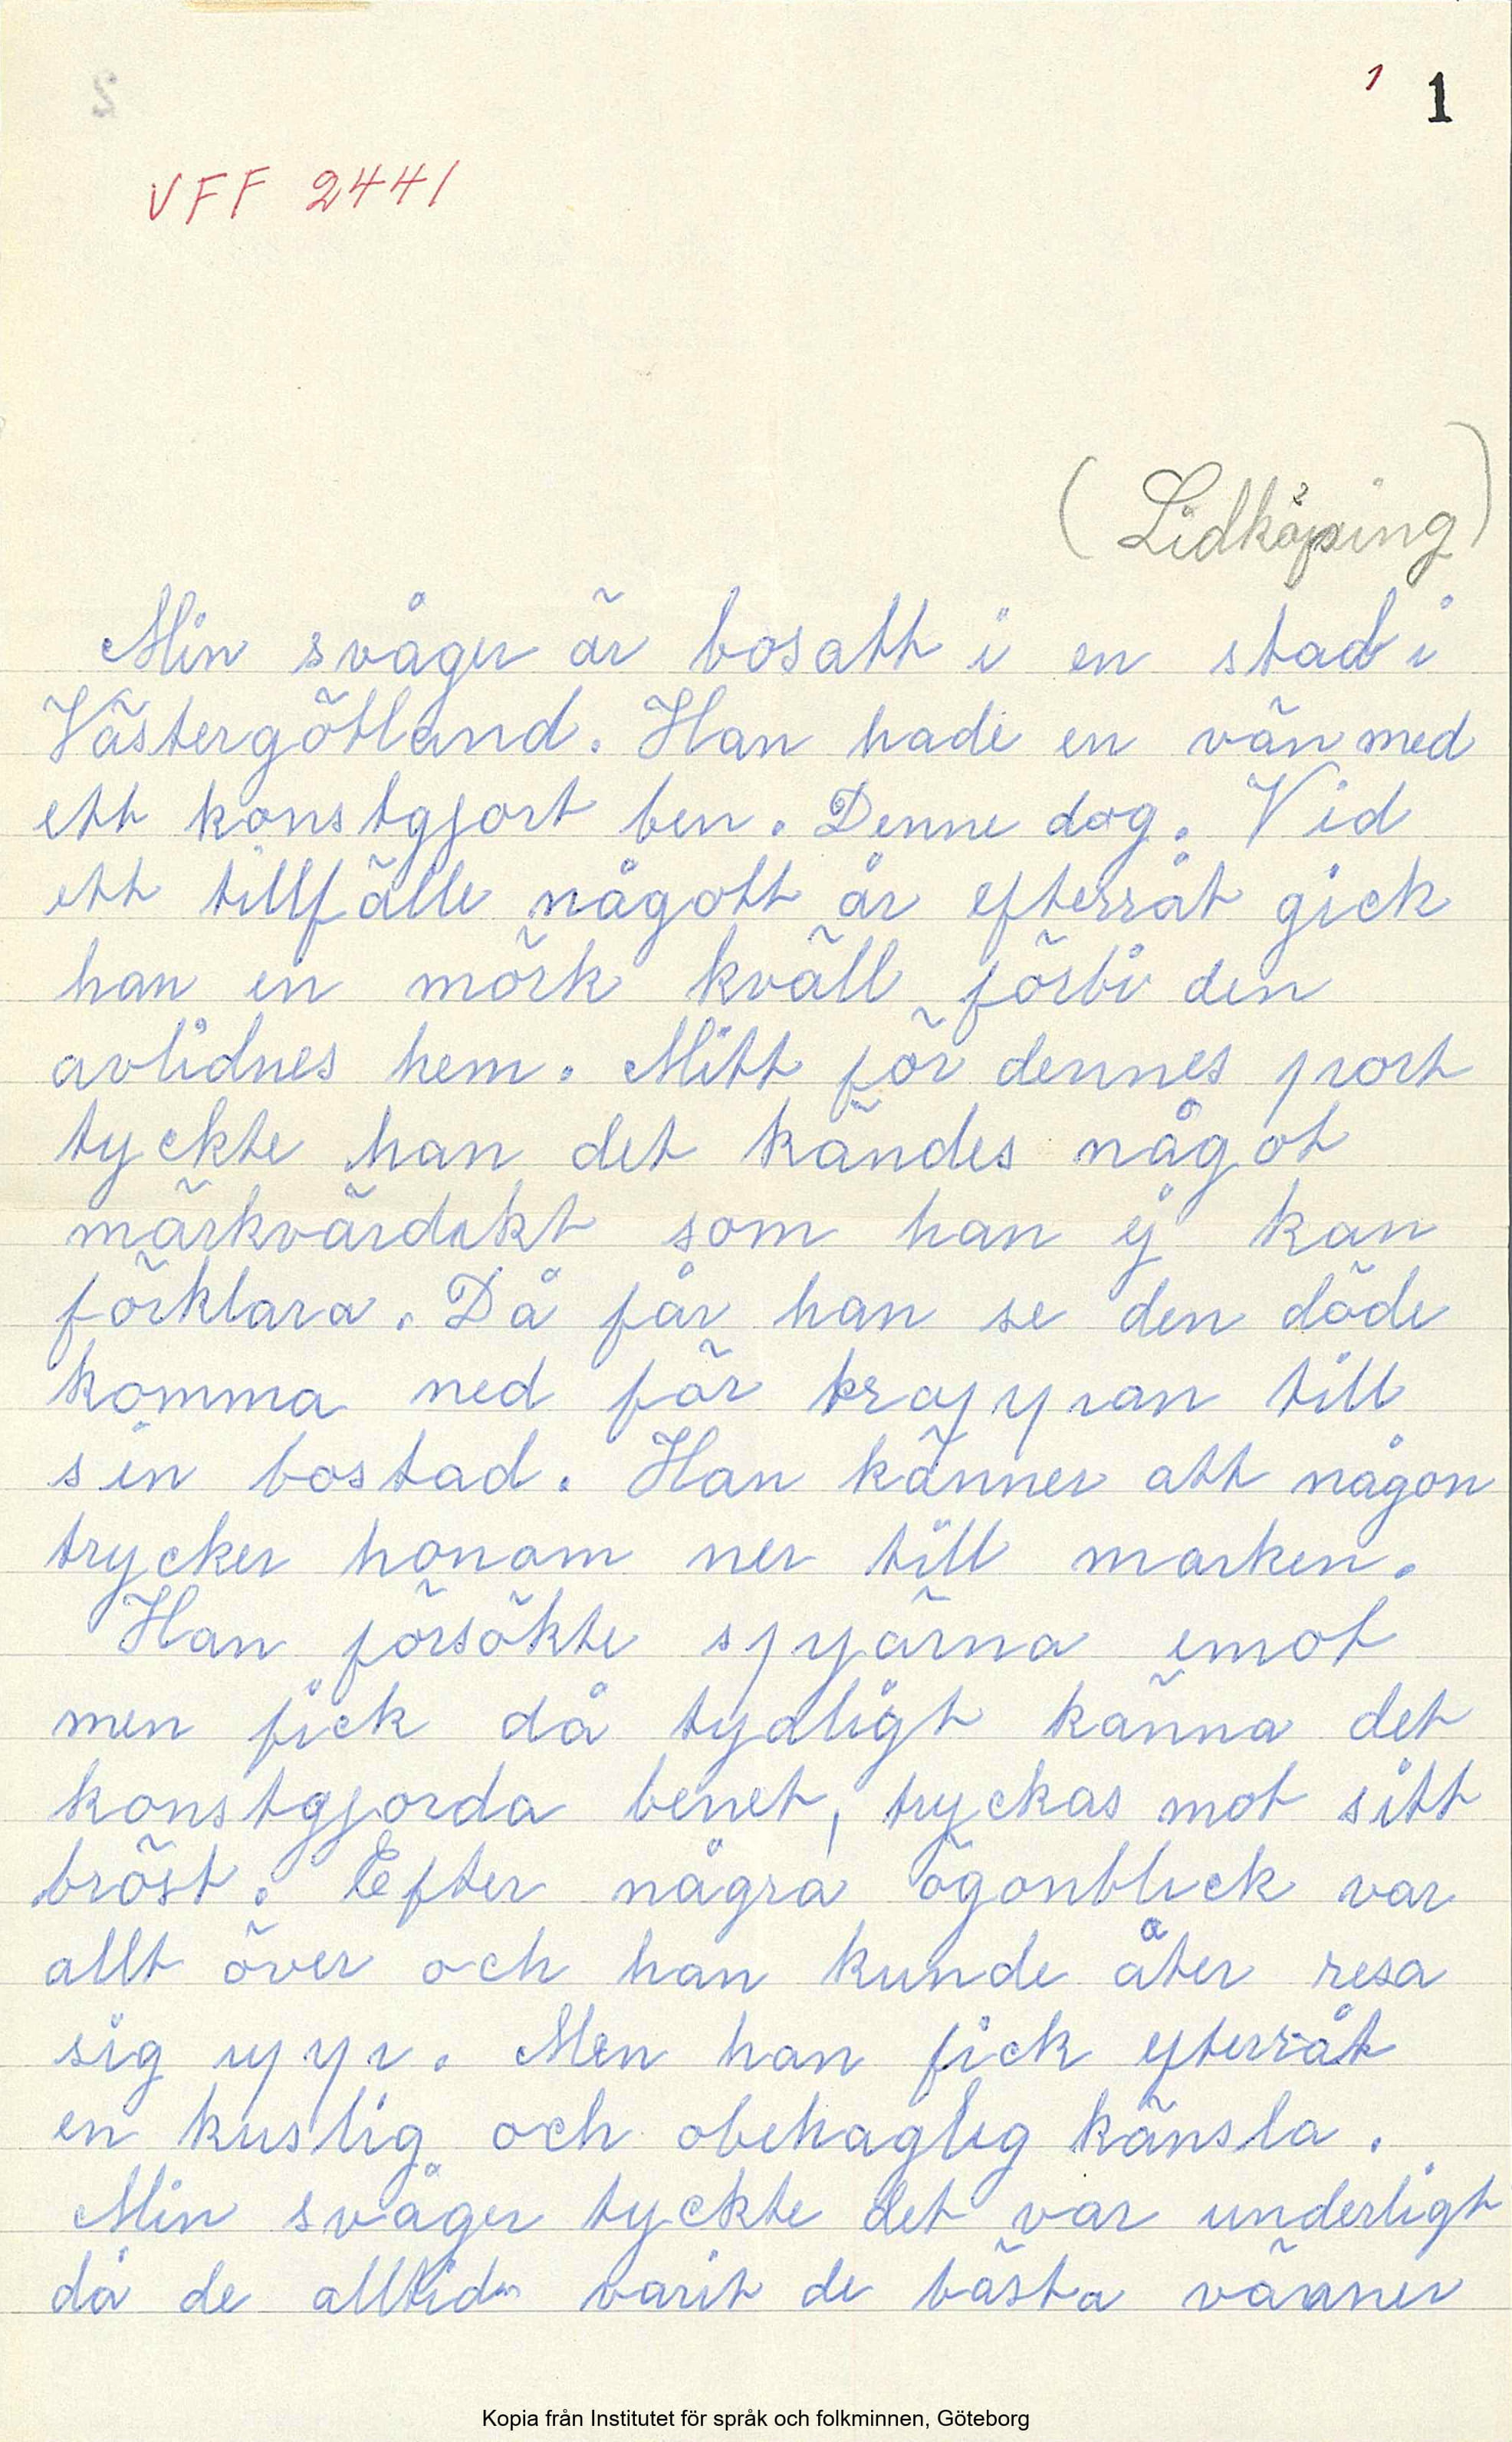 1 1
VFF 2441
(Lidköping)
Min svåger är bosatt i en stad i
Västergötland. Han hade en vän med
ett konstgjort ben. Denne dog. Vid
ett tillfälle något år efteråt gick
han en mörk kväll förbi den
avlidnes hem. Mitt för dennes port
tyckte han det kändes något
märkvärdikt som han ej kan
förklara. Då får han se den döde
komma ned för trappan till
sin bostad. Han känner att någon
trycker honom ner till marken.
Han försökte spjärna emot
men fick då tydligt känna det
konstgjorda benet, tryckas mot sitt
bröst. Efter några ögonblick var
allt över och han kunde åter resa
sig upp. Men han fick efteråt
en kuslig och obehaglig känsla.
Min svåger tyckte det var underligt
då de alltid varit de bästa vänner
Kopia från Institutet för språk och folkminnen, Göteborg